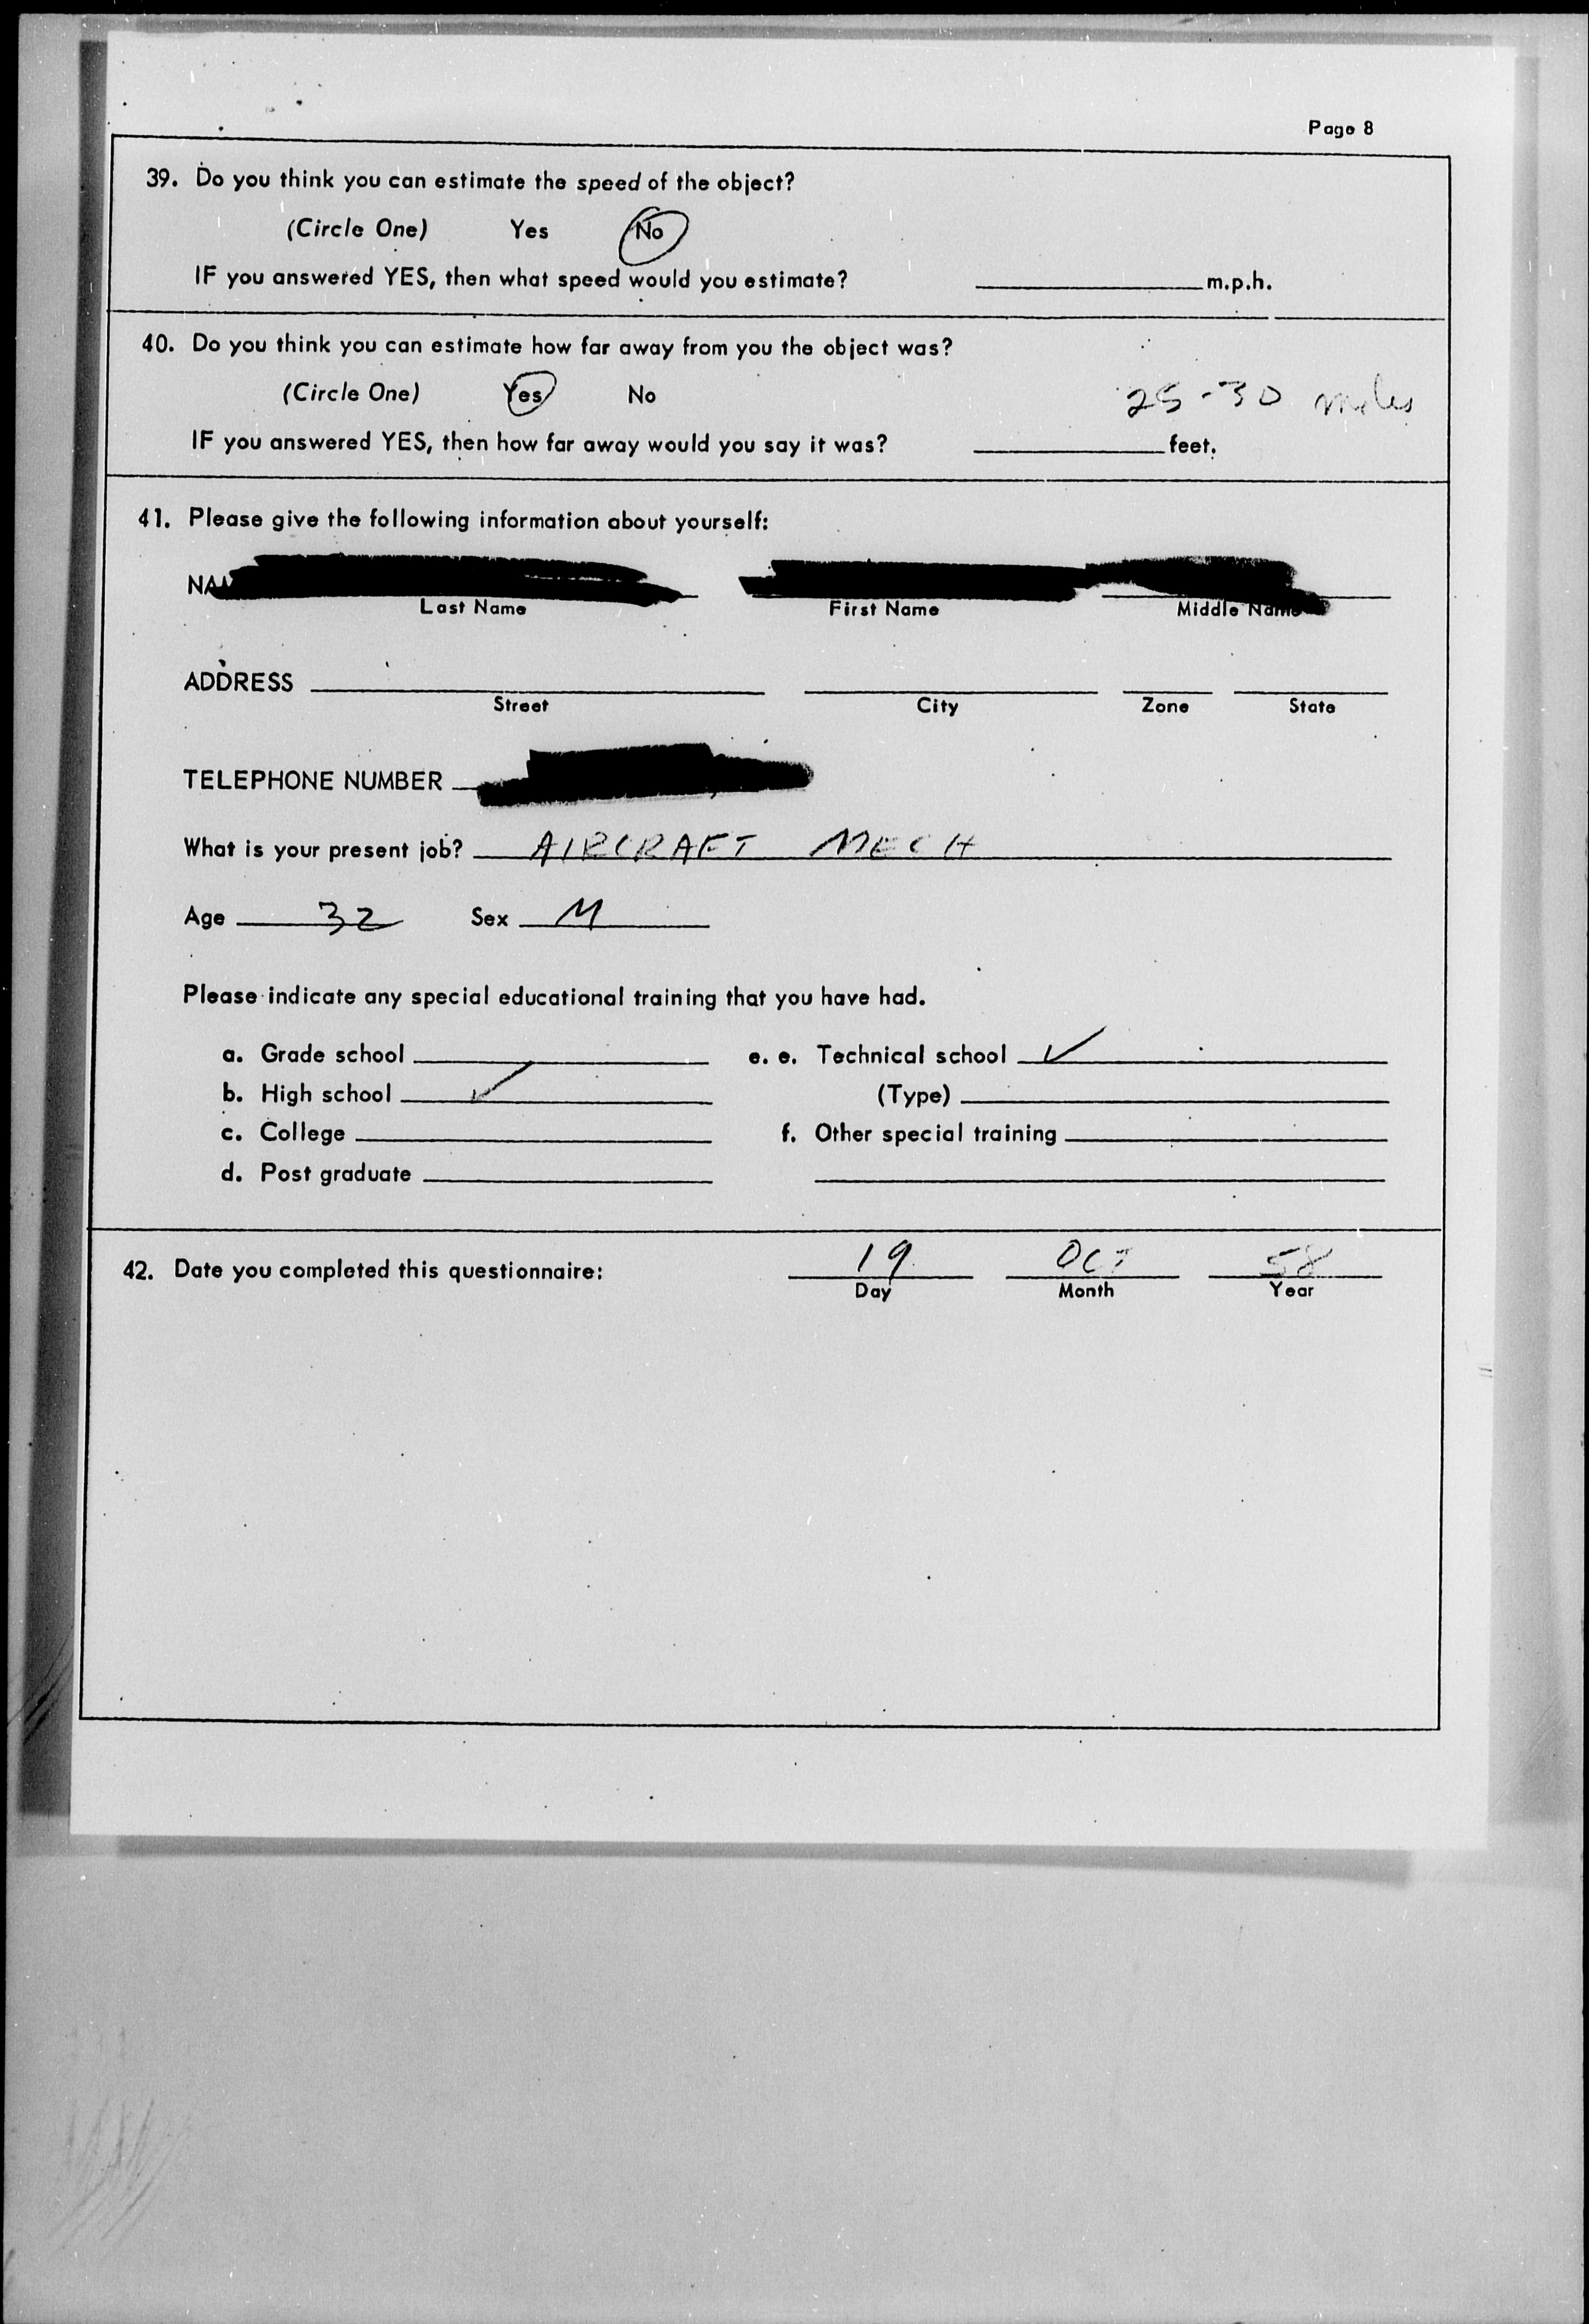 Page 8
39. Do you think you can estimate the speed of the object?
(Circle One) Yes No
IF you answered YES, then what speed would you estimate? m.p.h.
40. Do you think you can estimate how far away from you the object was?
(Circle One) Yes No 25-30 miles
IF you answered YES, then how far away would you say it was? feet.
41. Please give the following information about yourself:
Last Name First Name Middle Name
ADDRESS
Street City Zone State
TELEPHONE NUMBER
What is your present job? AIRCRAFT MECH
Age 32 Sex M
Please indicate any special educational training that you have had.
a. Grade school e. e. Technical school ✓
b. High school ✓ (Type)
c. College f. Other special training
d. Post graduate
42. Date you completed this questionnaire: 19 OCT 58
Day Month Year